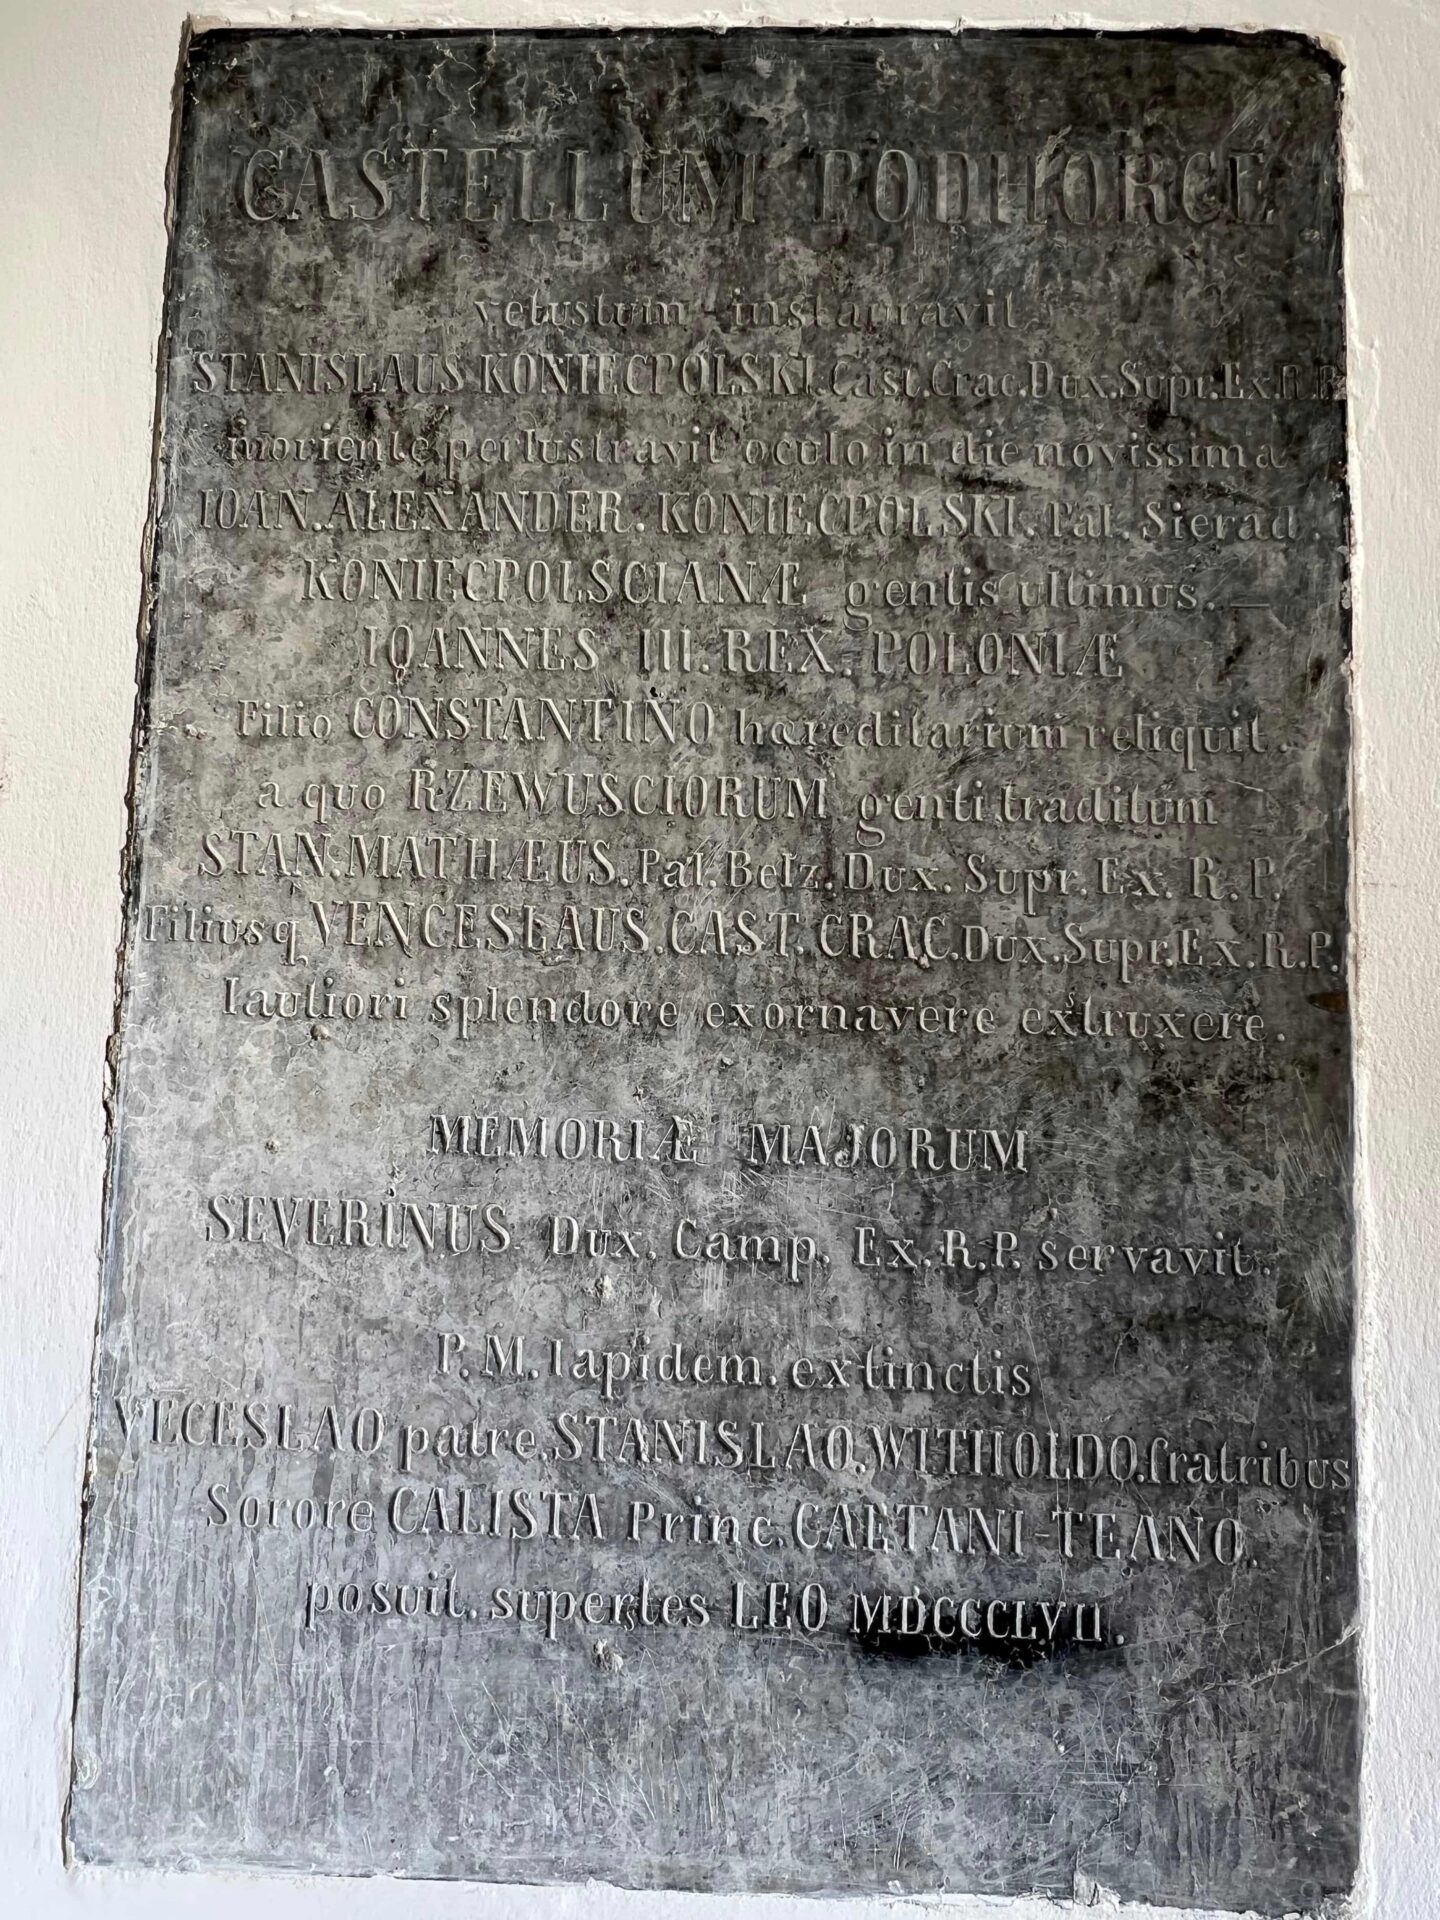 CASTELLUM PODHORCE
vetustum instauravit
STANISLAUS KONIECPOLSKI. Cast. Crac. Dux. Supr. Ex. R. P.
moriente perlustravit oculo in die novissima
IOAN. ALEXANDER. KONIECPOLSKI. Pal. Sierad.
KONIECPOLSCIANÆ gentis ultimus. —
IOANNES III. REX. POLONIÆ
Filio CONSTANTINO hæreditarium reliquit.
a quo RZEWUSCIORUM genti traditum
STAN. MATHÆUS. Pal. Belz. Dux. Supr. Ex. R. P.
Filiusq VENCESLAUS. CAST. CRAC. Dux. Supr. Ex. R. P.
lautiori splendore exornavere extruxere.
MEMORIÆ MAJORUM
SEVERINUS. Dux. Camp. Ex. R. P. servavit.
P. M. lapidem. extinctis
VECESLAO patre. STANISLAO. WITHOLDO. fratribus
Sorore CALISTA Princ. CAETANI-TEANO.
posuit. superstes LEO MDCCCLVII.